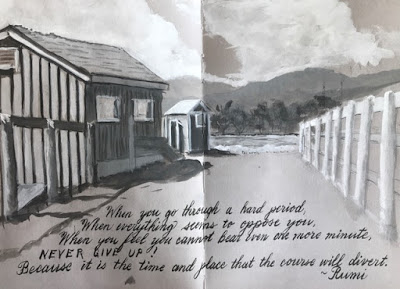 When you go through a hard period,
When everything seems to oppose you,
When you feel you cannot bear even one more minute,
NEVER GIVE UP!
Because it is the time and place that the course will divert.
~Rumi